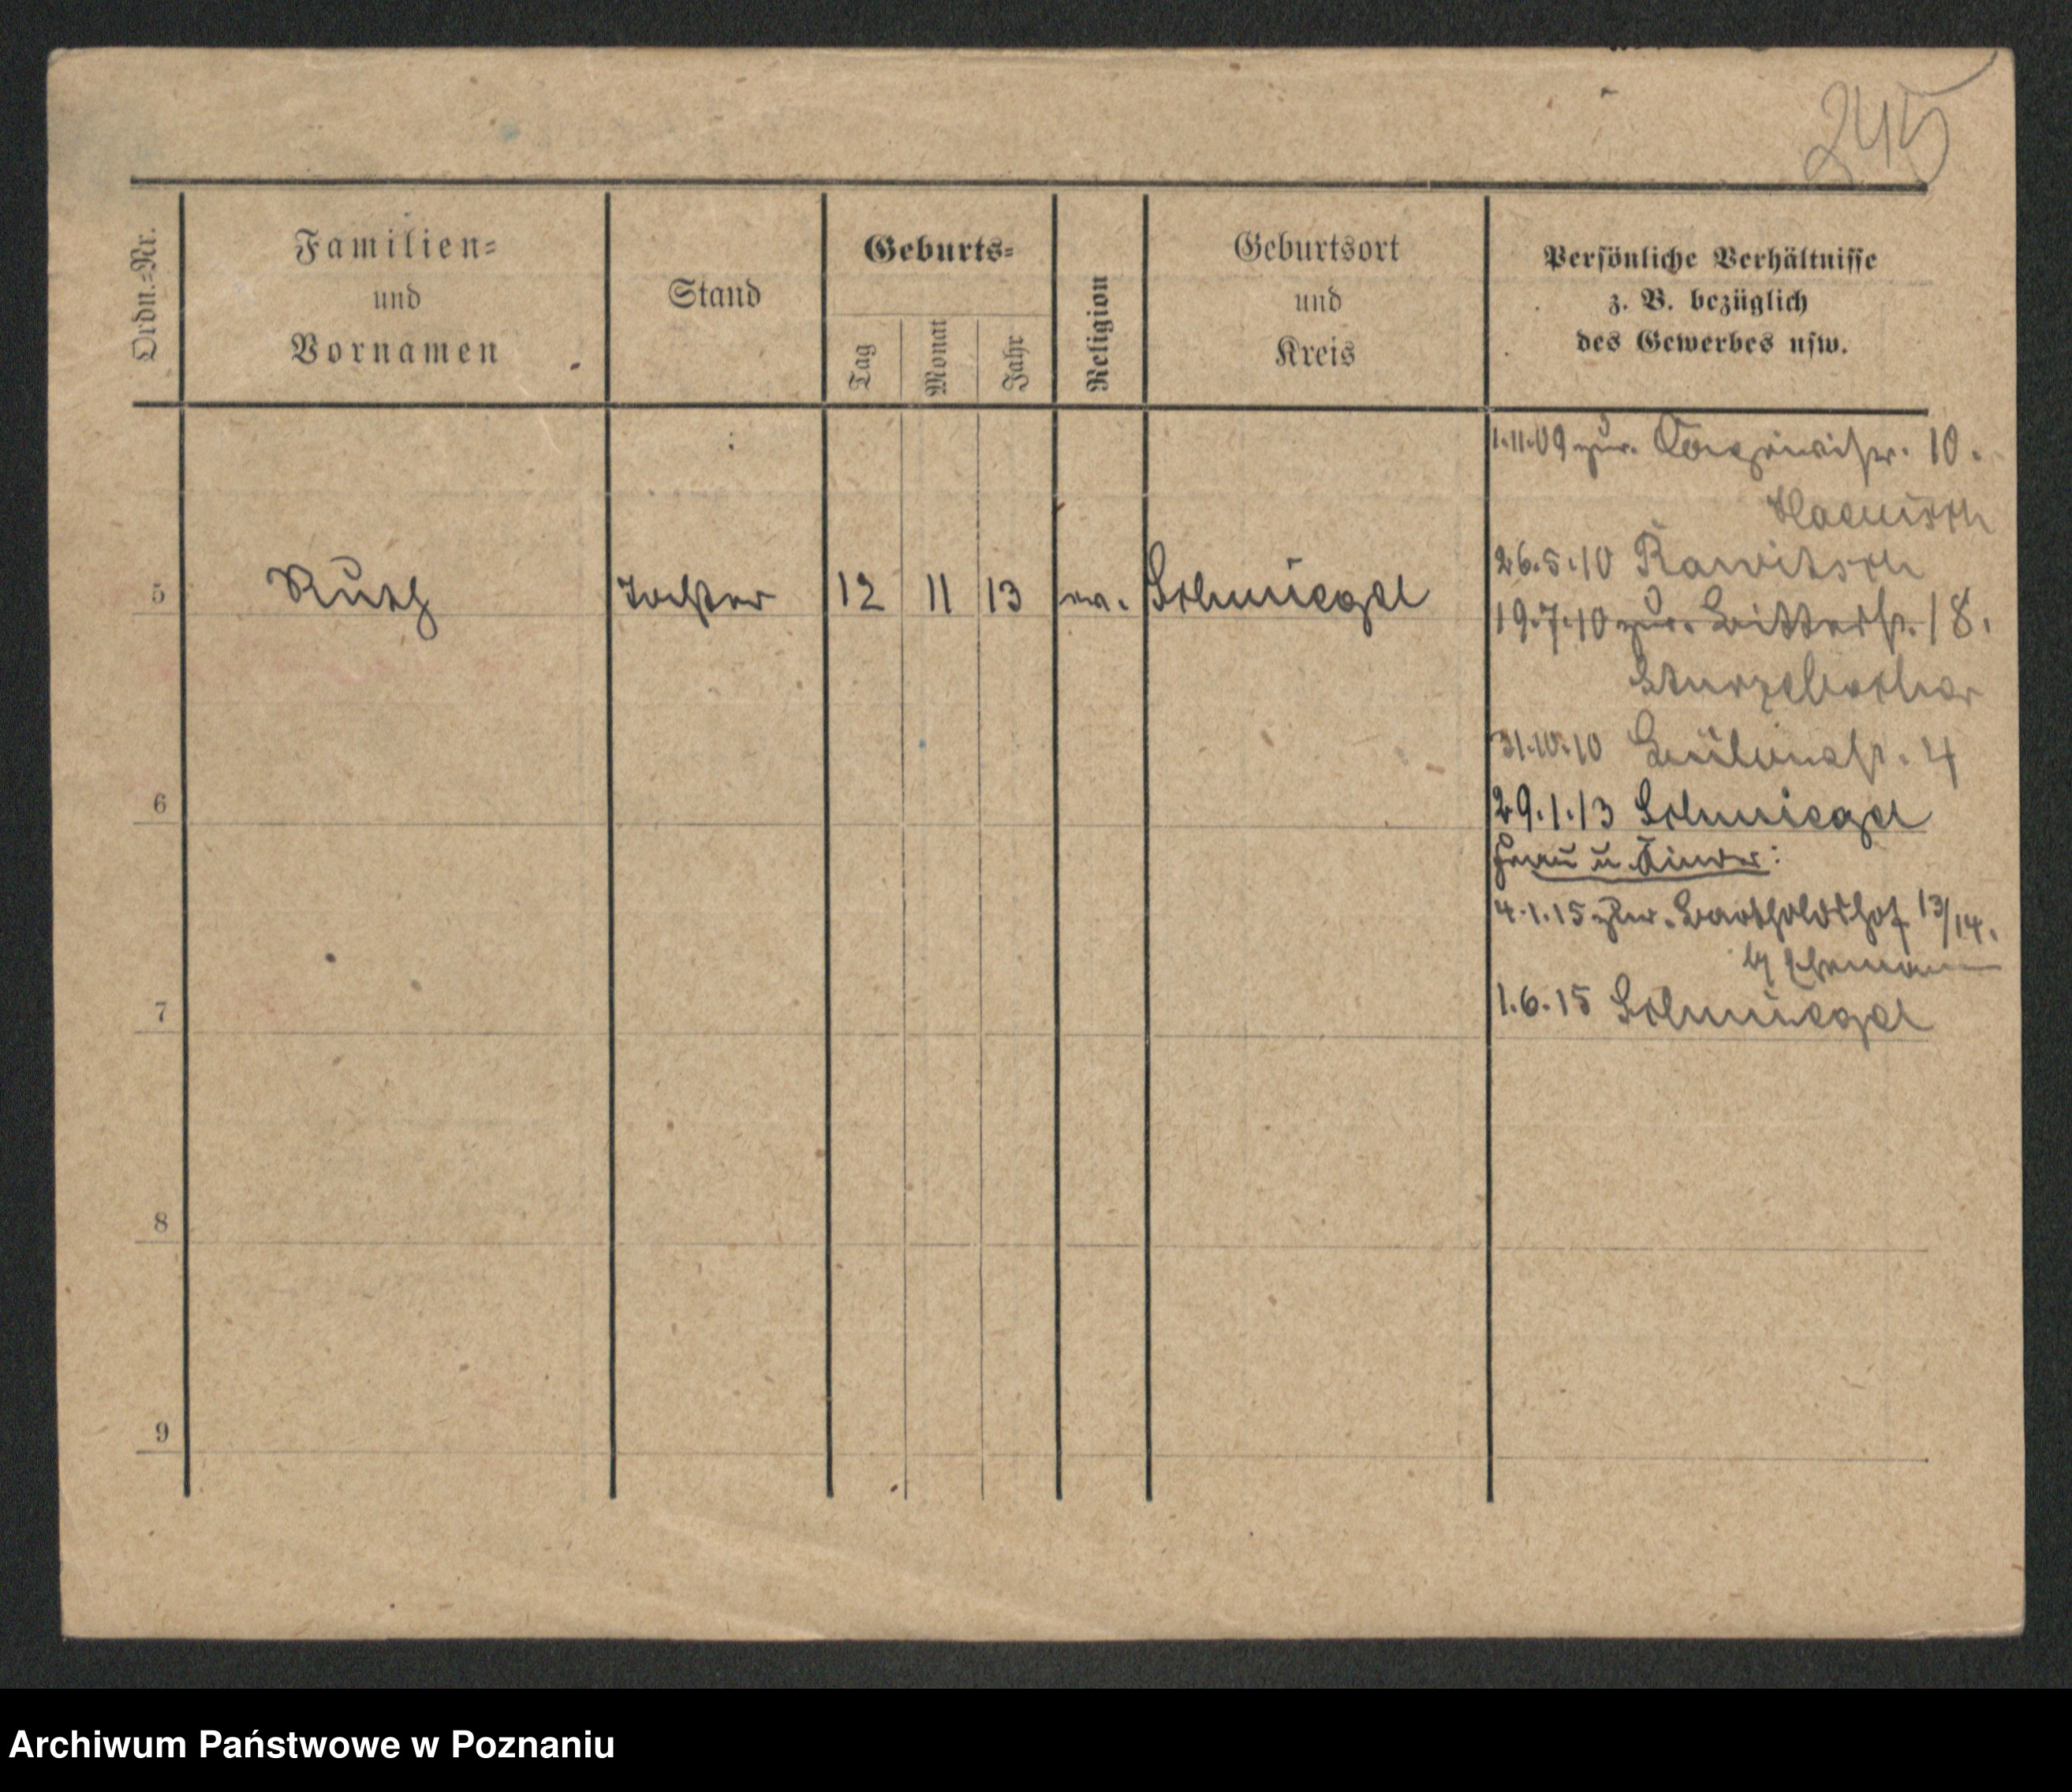 245
Ordn.=Nr.
Familien=
und
Vornamen
Stand
Geburts=
Tag
Monat
Jahr
Religion
Geburtsort
und
Kreis
Persönliche Verhältnisse
z. B. bezüglich
des Gewerbes usw.
1.11.09 zur. 10.
Haenisch
26.5.10 Rawitsch
5 Ruth Tochter 12 11 13 ev. Schmiegel
19.7.10 zur. Bitterstr. 18.
31.10.10 4
6
29.1.13 Schmiegel
Frau u Kinder:
4.1.15 zur. Bartholdshof 13/14.
b/ Ehemann
7
1.6.15 Schmiegel
8
9
Archiwum Państwowe w Poznaniu